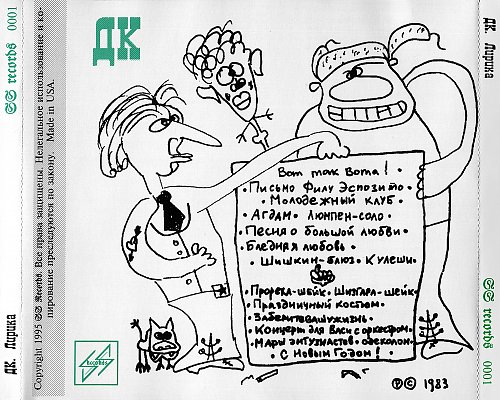 SS records 0001
ДК. Лирика
Copyright 1995 SS Records. Все права защищены. Нелегальное использование и ко-
пирование преследуются по закону. Made in USA.
ДК
Вот так Вота!
• Письмо Филу Эспозито •
• Молодежный клуб •
• Агдам • Люмпен-соло •
• Песня о большой любви •
• Бледная любовь •
• Шишкин-блюз • Кулеши •
• Прорехл-шейк • Шизгара-шейк •
• Праздничный костюм •
• Заберитевашужизнь •
• Концерт для Васи с оркестром •
• Марш энтузиастов • одеколон •
• С Новым Годом! •
Records
℗ © 1983
ДК. Лирика
SS records 0001